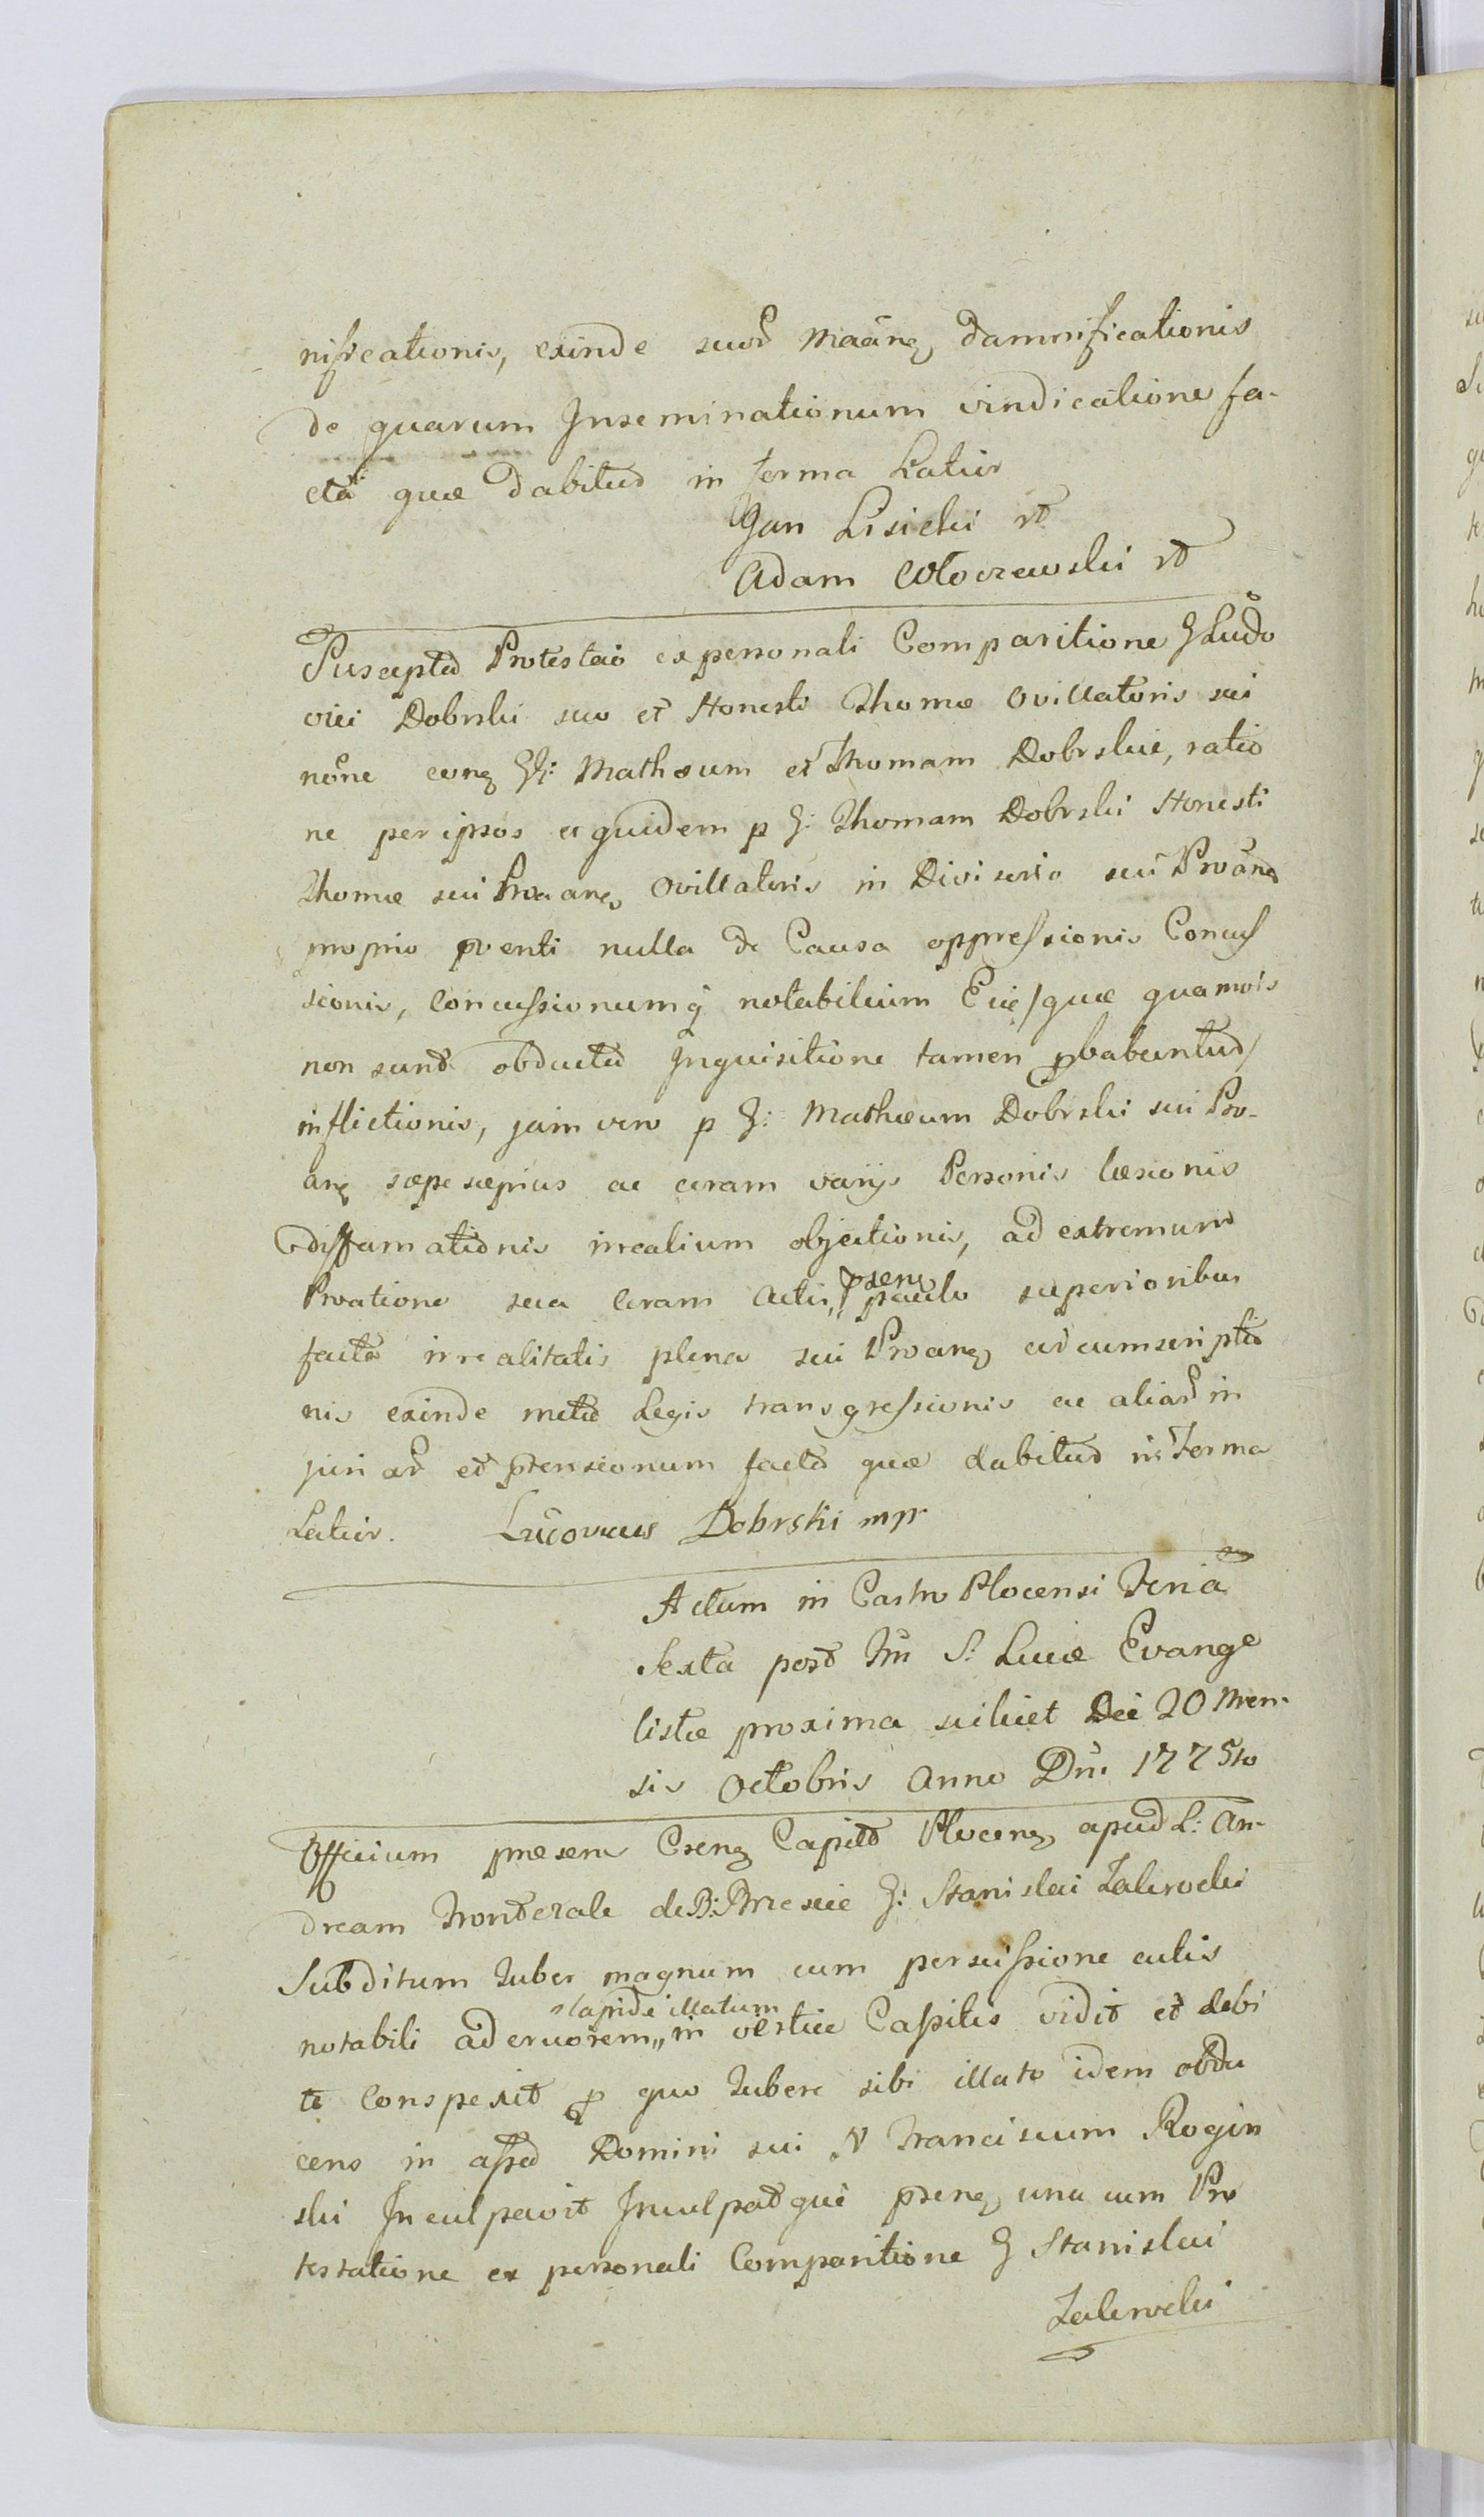 nificationis, exinde suor Maãnq damnificationis
de quarum Inseminationum vindicatione fa-
cta quæ dabitur in forma Latius
Jan Lisicki rt
Adam Włoczewski rt
Suscepta Protestaõ ex personali Comparitione G Ludo
vici Dobrski suo et Honesti Thomæ Ovillatoris sui
nõne conq G: Mathæum et Thomam Dobrskie, ratio
ne per ipsos et quidem p G: Thomam Dobrski Honesti
Thomæ sui Proanq Ovillatoris in Divisorio sui Proãnq
proprio pventi nulla de Causa oppressionis Concus
sionis, Concussionumq notabilium Eidẽ/quæ quamvis
non sunt obducta Inquisitione tamen pbabuntur/
inflictionis, jam vero p G: Mathæum Dobrski sui Pro-
anq sæpe sæpius ac coram varijs Personis læsionis
diffamationis irrealium objectionis, ad extremum
Proatione sua coram Actis,, psenq paulo superioribus
facta irrealitatis plena sui Proanq circumscriptio
nis exinde metu Legis transgressionis ac aliar in
juriar et ptensionum facta quæ dabitur in Forma
Latius. Ludovicus Dobrski mpr
Actum in Castro Plocensi Feria
Sexta post Fm S: Lucæ Evange
listæ proxima scilicet Die 20 Men-
sis Octobris Anno Dni 1775to
Officium præsens Csenq Capitle Plocenq apud L: An-
dream Frontczak de B: Brzescie G: Stanislai Zalewski
Subditum Tuber magnum cum perscissione cutis
notabili ad cruorem,, a lapide illatum in vertice Capitis vidit et debi
te Conspexit p quo Tubere sibi illato idem obdu
cens in assa Domini sui N Franciscum Rogin
ski Inculpavit Inculpatque psenq una cum Pro
testatione ex personali Comparitione G Stanislai
Zalewski